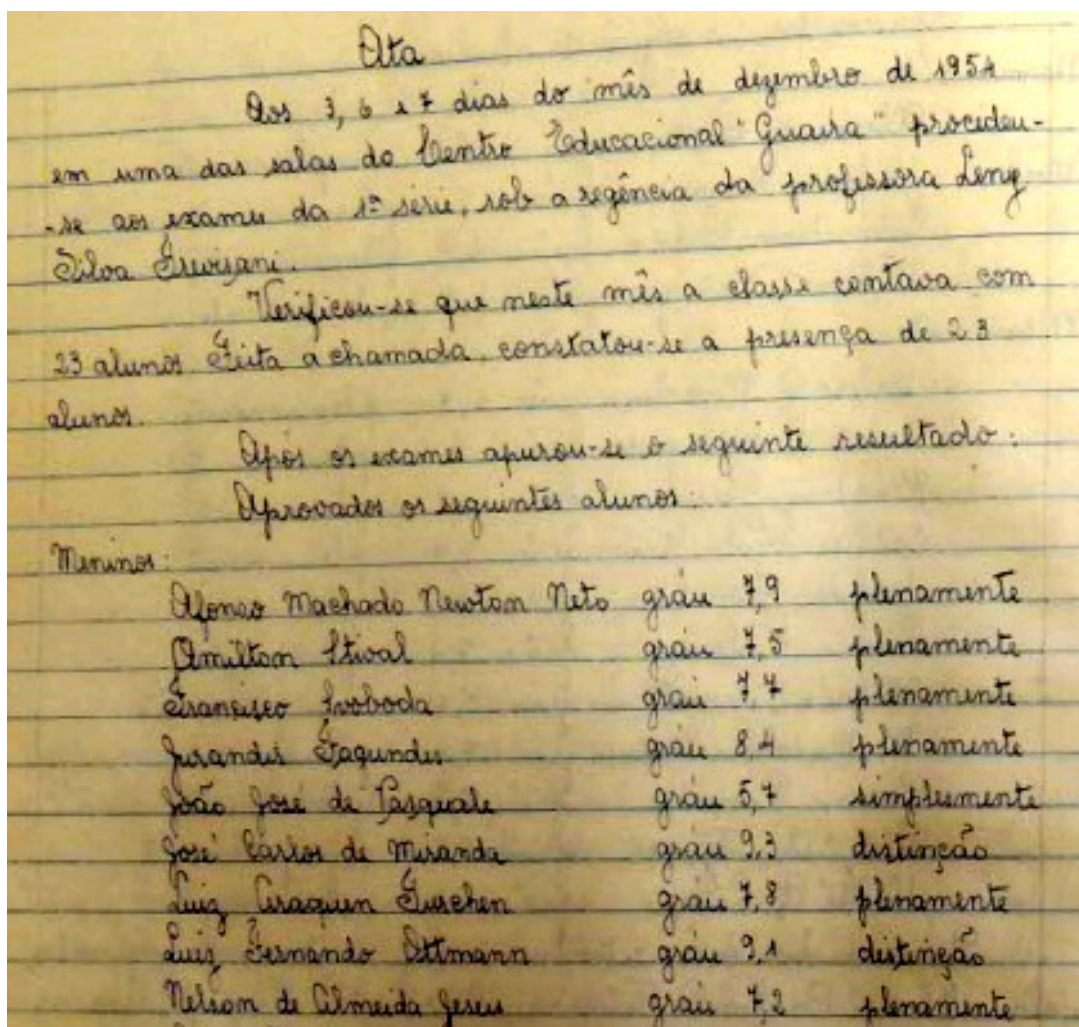 Ata
Aos 3, 6 e 7 dias do mês de dezembro de 1954
em uma das salas do Centro Educacional "Guaira" procedeu-
-se aos exames da 1ª série, sob a regência da professora Leny
Silva Trevisani.
Verificou-se que neste mês a classe contava com
23 alunos Feita a chamada constatou-se a presença de 23
alunos.
Após os exames apurou-se o seguinte resultado:
Aprovados os seguintes alunos:
Meninos:
Afonso Machado Newton Neto gráu 7,9 plenamente
Amilton Stival gráu 7,5 plenamente
Francisco Svoboda gráu 7,7 plenamente
Jurandir Fagundes gráu 8,4 plenamente
João José de Pasquale gráu 5,7 simplesmente
José Carlos de Miranda gráu 9,3 distinção
Luiz gráu 7,8 plenamente
Luiz Fernando Ottmann gráu 9,1 distinção
Nelson de Almeida Jesus gráu 7,2 plenamente